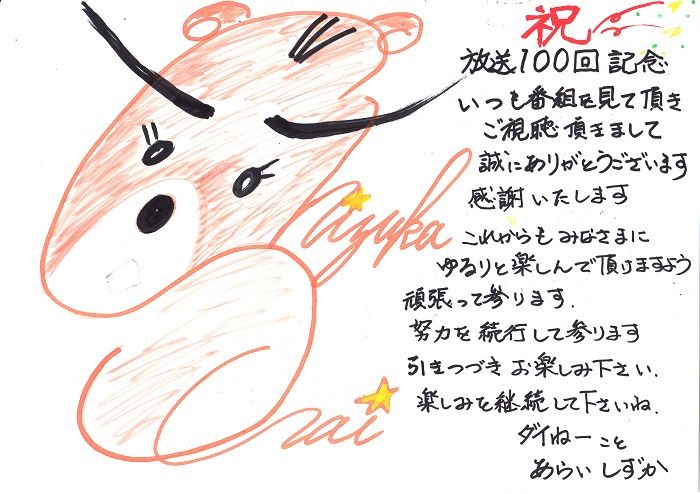 祝
放送100回記念
いつも番組を見て頂き
ご視聴頂きまして
誠にありがとうございます
感謝いたします
これからもみなさまに
ゆるりと楽しんで頂けますよう
頑張って参ります.
努力を続行して参ります
引きつづきお楽しみ下さい.
楽しみを継続して下さいね.
ダイねーこと
あらいしずか
Shizuka
Arai